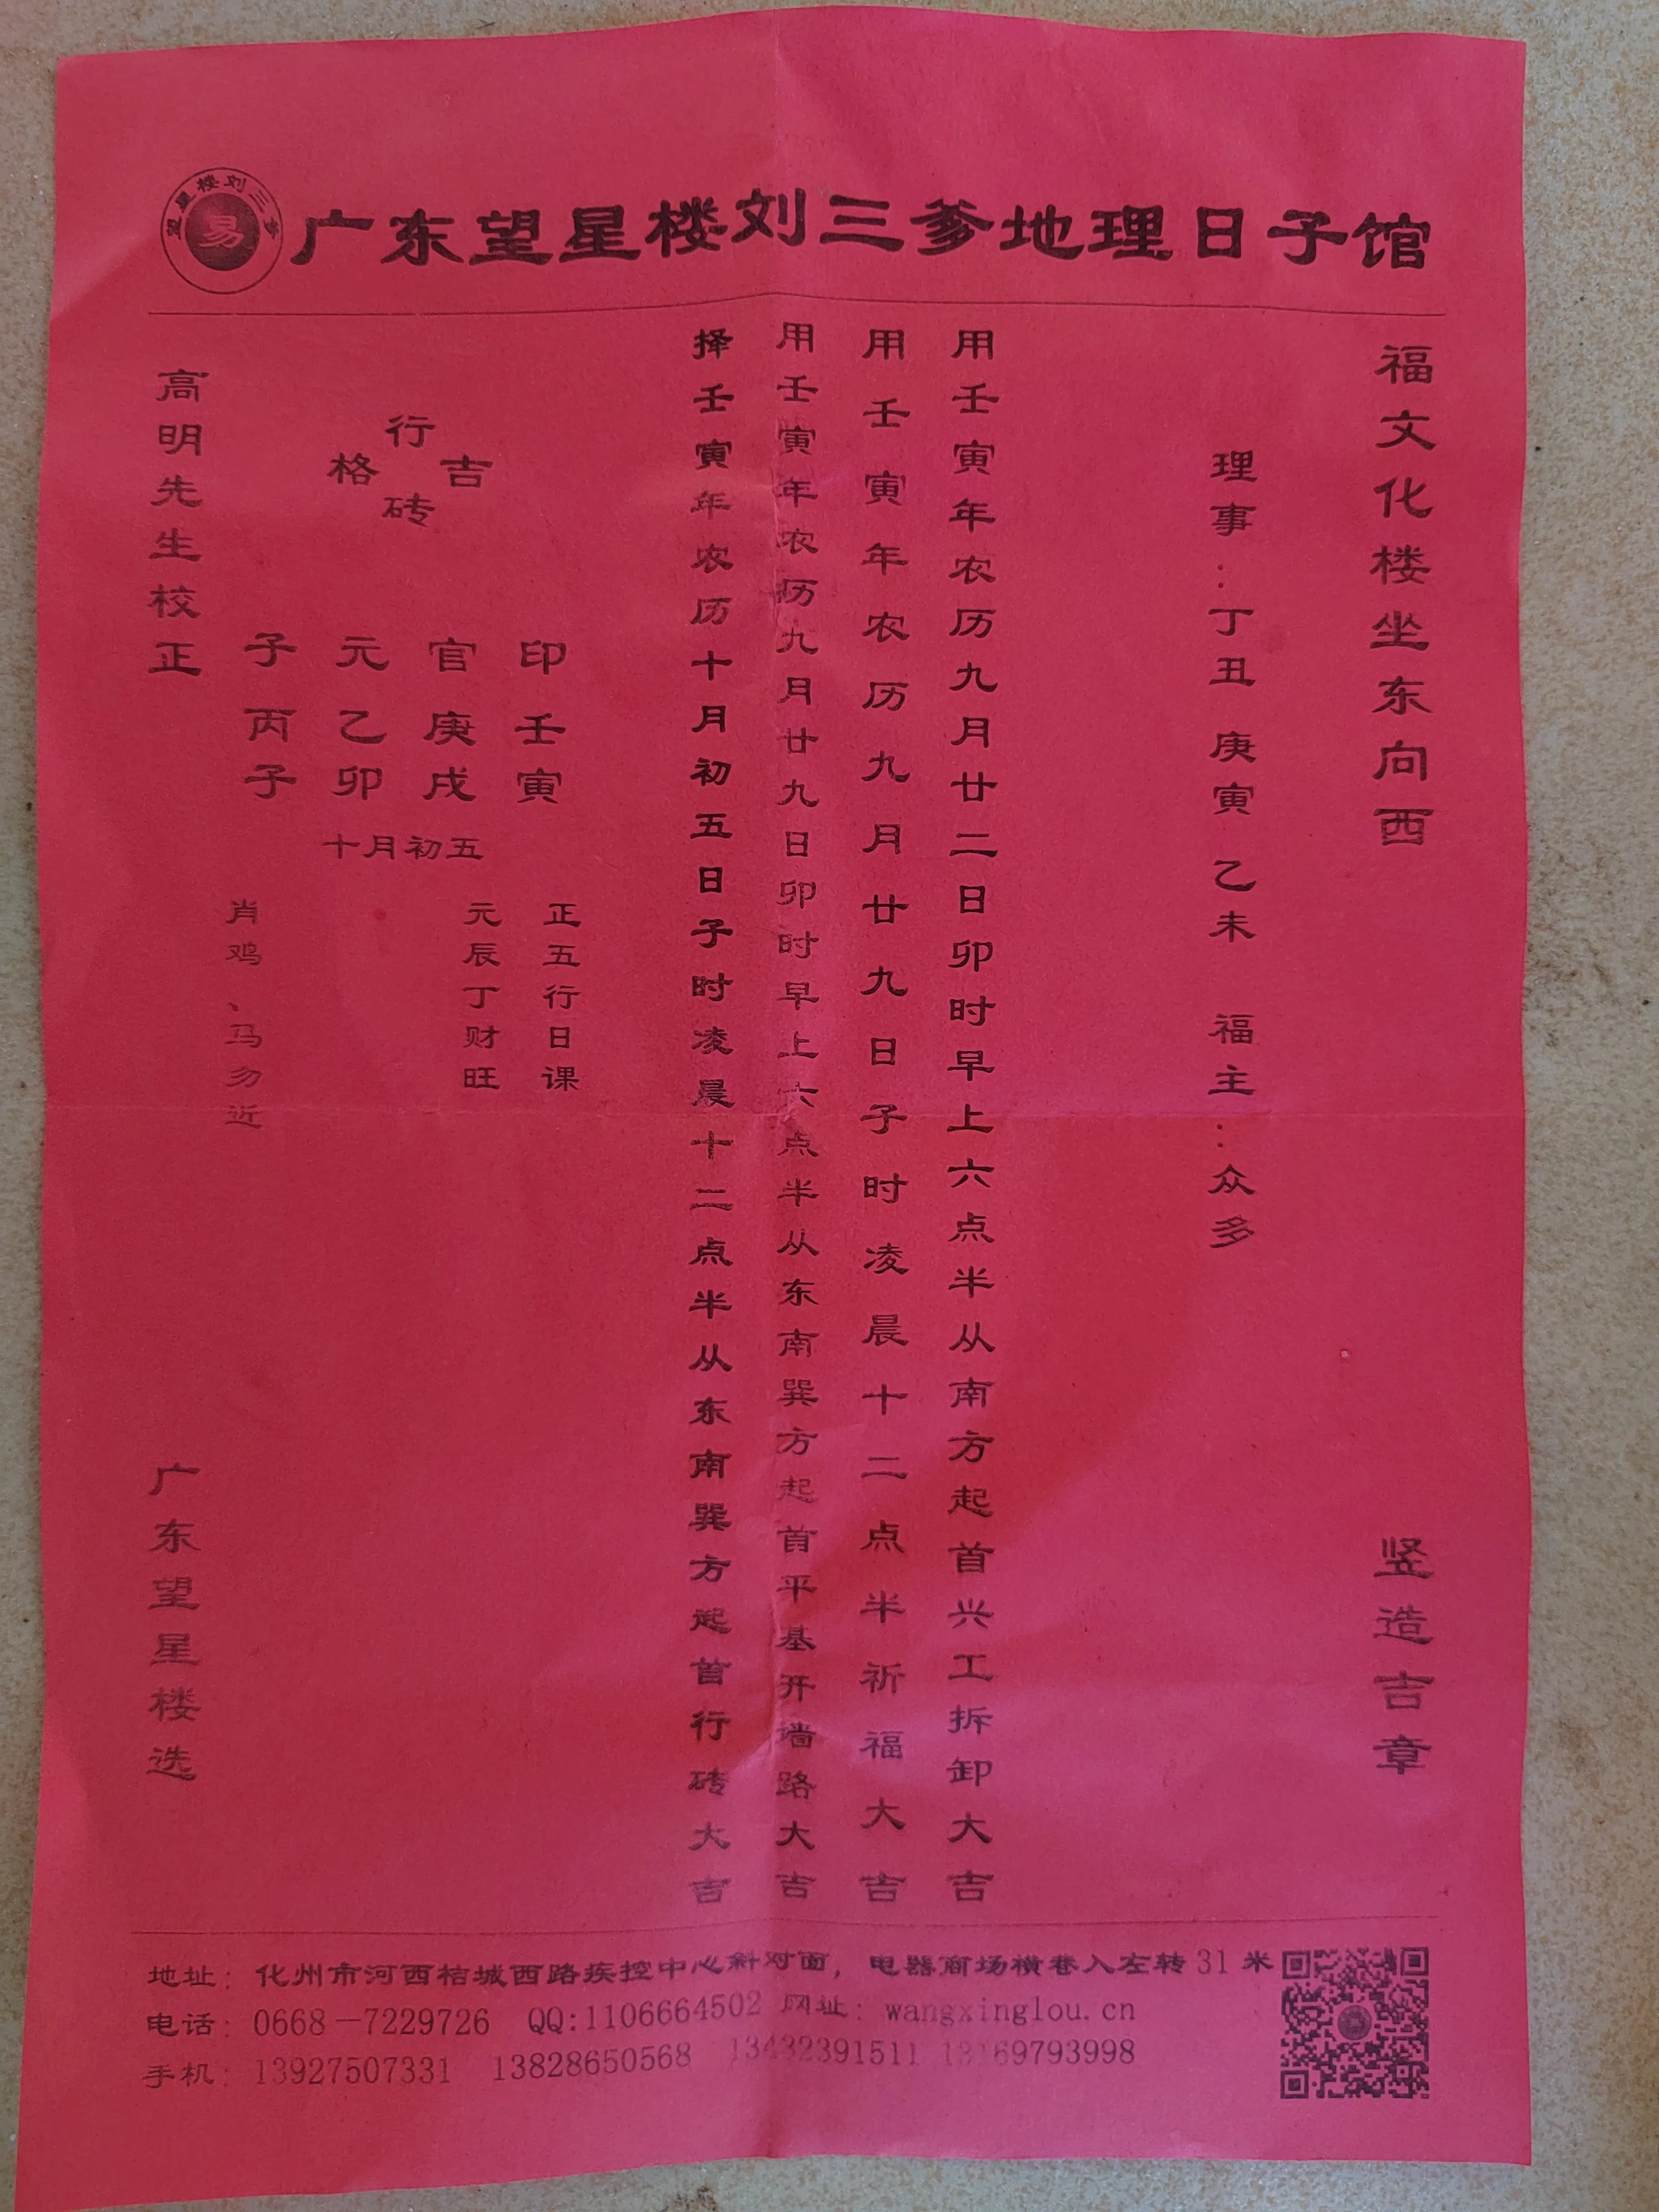 望星楼刘三爹
易
广东望星楼刘三爹地理日子馆
福文化楼坐东向西 竖造吉章
理事：丁丑 庚寅 乙未 福主：众多
用壬寅年农历九月廿二日卯时早上六点半从南方起首兴工拆卸大吉
用壬寅年农历九月廿九日子时凌晨十二点半祈福大吉
用壬寅年农历九月廿九日卯时早上六点半从东南巽方起首平基开墙路大吉
择壬寅年农历十月初五日子时凌晨十二点半从东南巽方起首行砖大吉
行
格 吉
砖
印壬寅
官庚戌
元乙卯
子丙子
十月初五
正五行日课
元辰丁财旺
肖鸡、马勿近
高明先生校正 广东望星楼选
地址：化州市河西桔城西路疾控中心斜对面，电器商场横巷入左转31米
电话：0668-7229726 QQ:1106664502 网址：wangxinglou.cn
手机：13927507331 13828650568 13432391511 13169793998